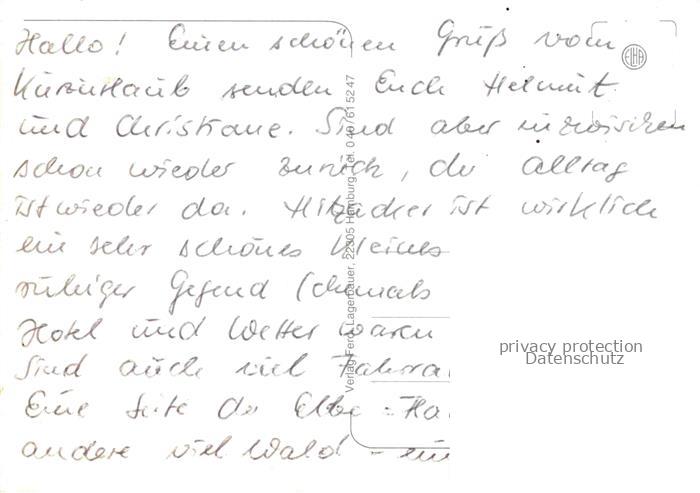 Hallo! Einen schönen Gruß vom
Kurzurlaub senden Euch Helmut
und Christiane. Sind aber inzwischen
schon wieder zurück, der Alltag
ist wieder da. Hitzacker ist wirklich
ein sehr schönes kleines
ruhiger Gegend (ehemals
Hotel und Wetter waren
Sind auch viel Fahrra
Eine Seite der Elbe - Ha
andere viel Wald - ein
ELHA
Verlag Ferd. Lagerbauer, 22305 Hamburg, Tel. 0 40/61 52 47
privacy protection
Datenschutz